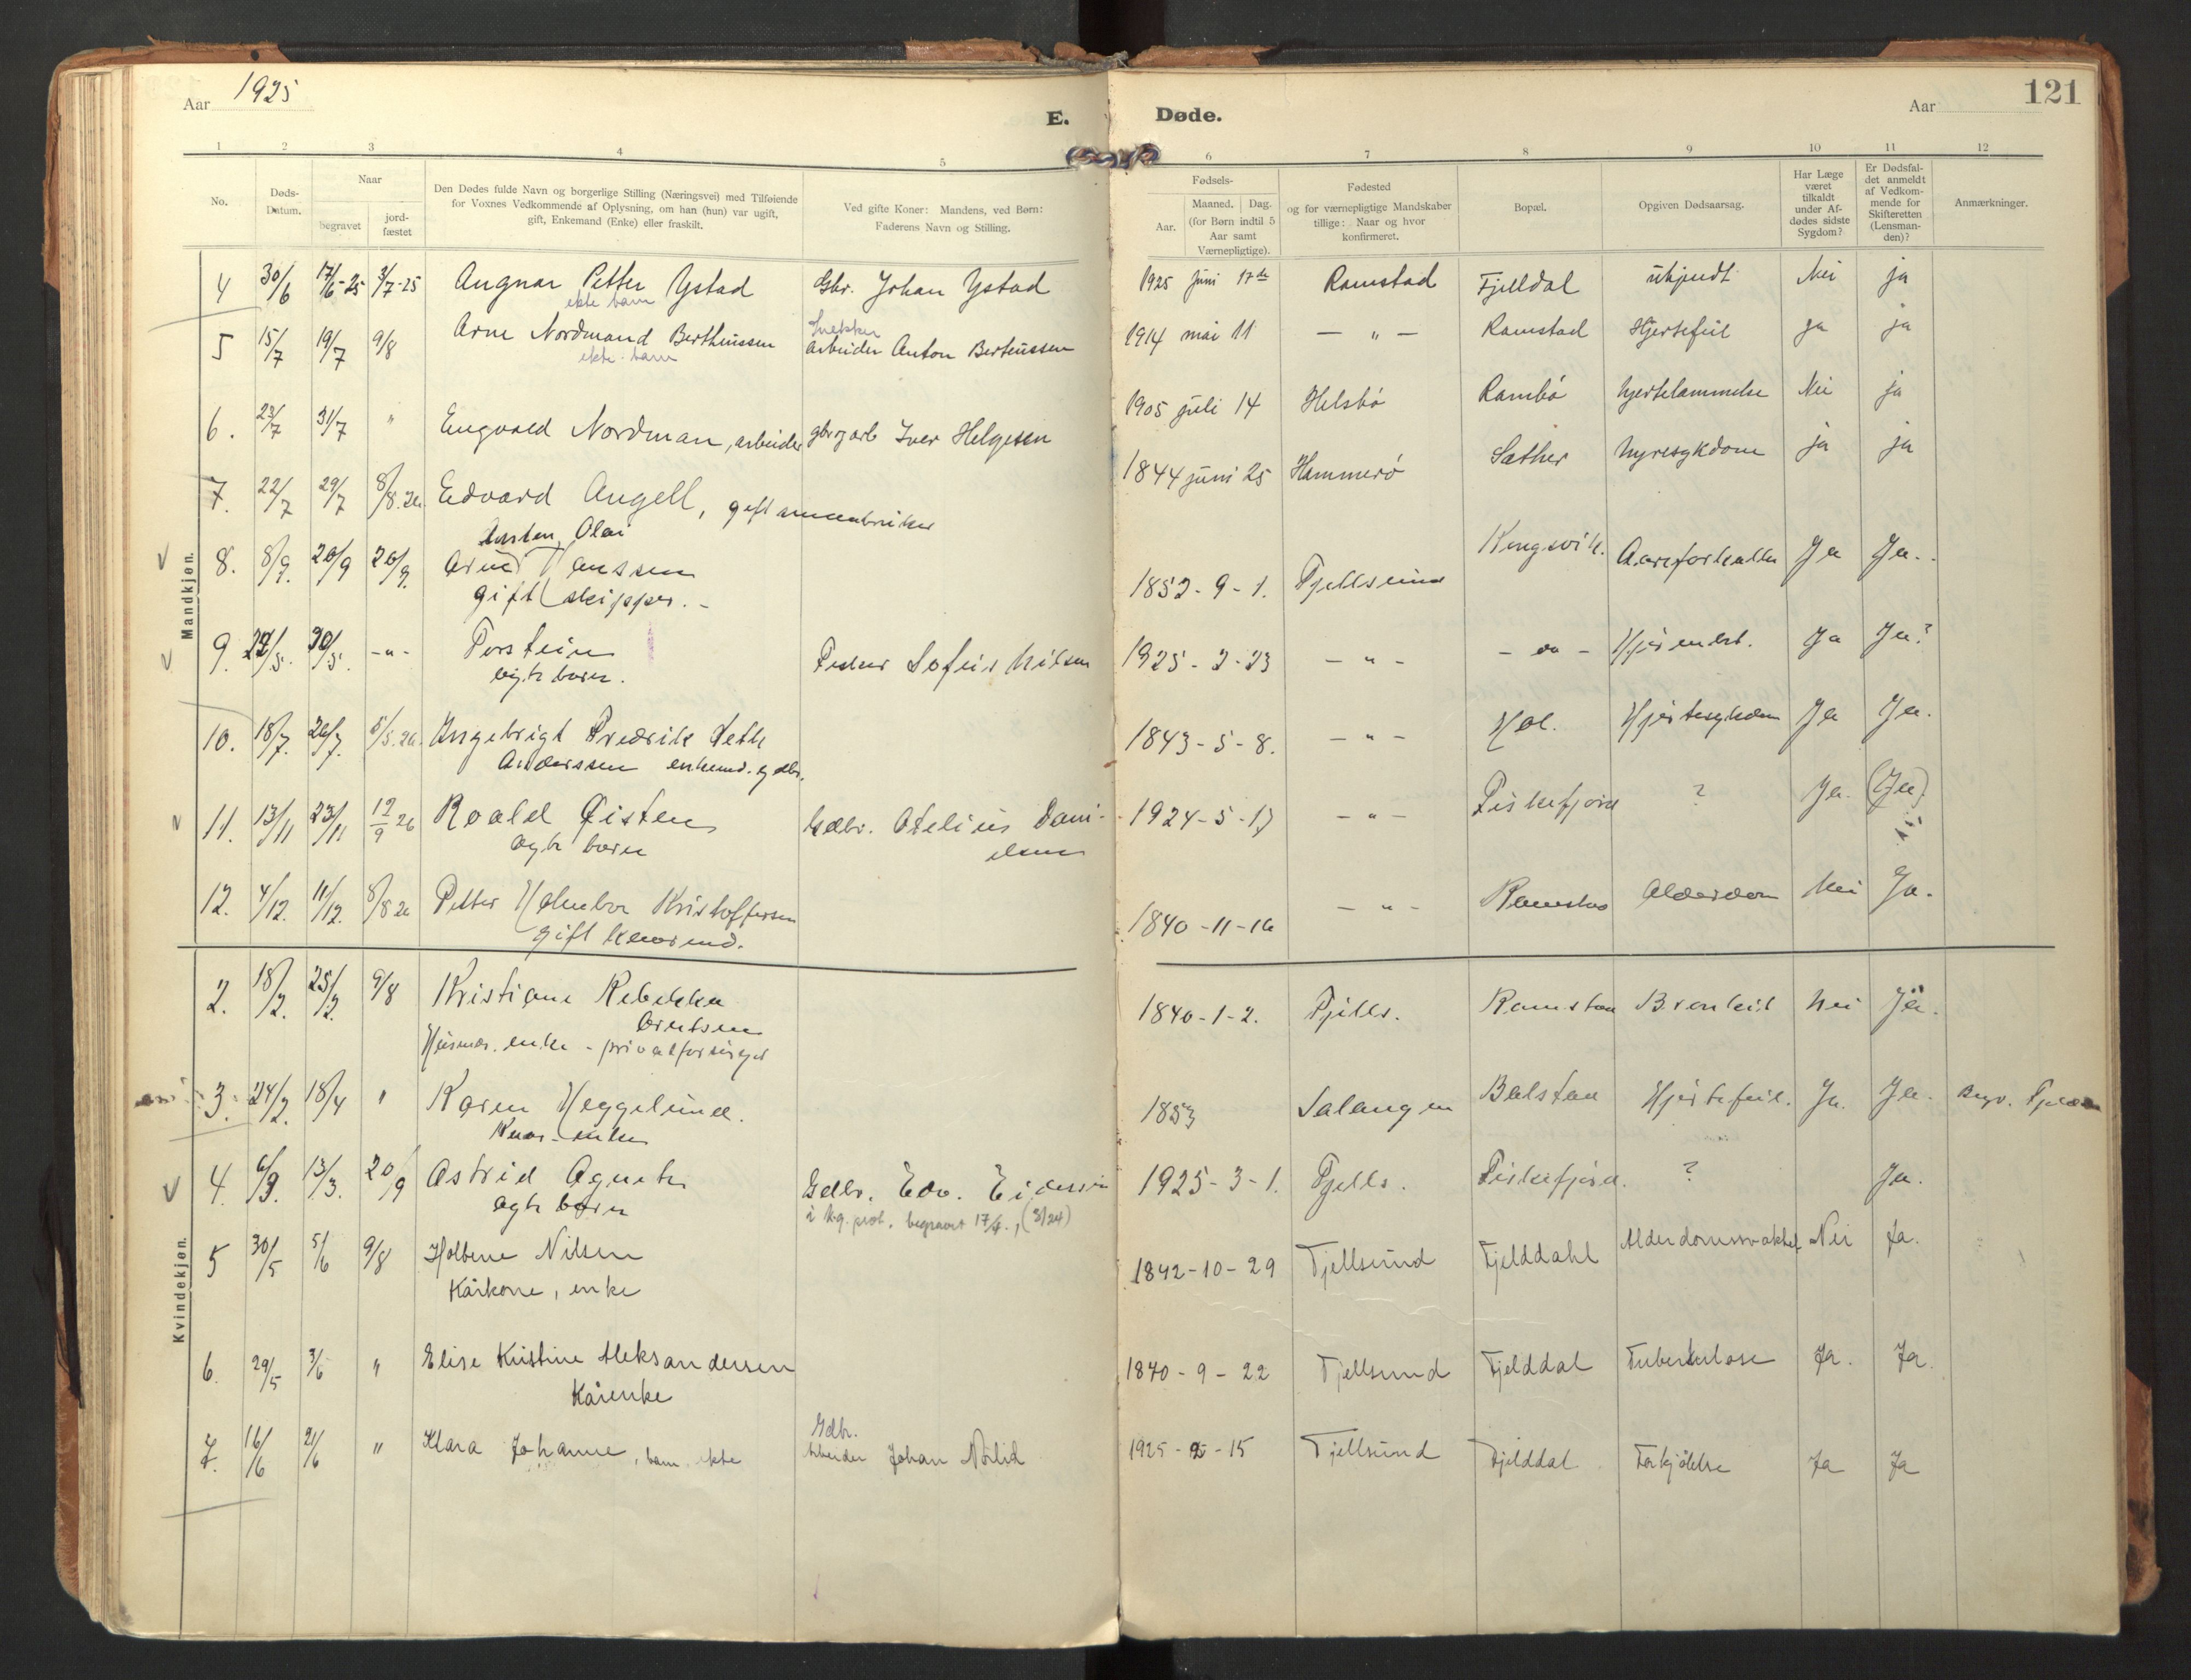 Aar 1925
E.
Døde.
Aar
121
1 2 3 4 5 6 7 8 9 10 11 12
No.
Døds-
Datum.
Naar
begravet
jord-
fæstet
Den Dødes fulde Navn og borgerlige Stilling (Næringsvei) med Tilføiende
for Voxnes Vedkommende af Oplysning, om han (hun) var ugift,
gift, Enkemand (Enke) eller fraskilt.
Ved gifte Koner: Mandens, ved Børn:
Faderens Navn og Stilling.
Fødsels-
Aar.
Maaned. Dag.
(for Børn indtil 5
Aar samt
Værnepligtige).
Fødested
og for værnepligtige Mandskaber
tillige: Naar og hvor
konfirmeret.
Bopæl.
Opgiven Dødsaarsag.
Har Læge
været
tilkaldt
under Af-
dødes sidste
Sygdom?
Er Dødsfal-
det anmeldt
af Vedkom-
mende for
Skifteretten
(Lensman-
den)?
Anmærkninger.
Mandkjøn.
4 30/6 17/6-25 3/7-25 Angnar Petter Ystad Gbr. Johan Ystad 1925 juni 17de Ramstad Fjelldal ukjendt Nei ja
ekte barn
Snekker
5 15/7 19/7 9/8 Arne Nordmand Berthinssen arbeider Anton Berteussen 1914 mai 11 — " — Ramstad Hjertefeil ja ja
ekte barn
6. 23/7 31/7 " Engvald Nordman, arbeider gbr og arb Iver Helgesen 1905 juli 14 Helsbø Rambø hjertelammelse Nei ja
7. 22/7 29/7 8/8.26 Edvard Angell, gift 1844 juni 25 Hammerø Sæther nyresykdom ja ja
Olai
8. 8/9. 20/9 20/9. Hanssen 1852-9-1. Fjellsund Kongsvik. Aareforkalkn Ja Ja.
gift skipper.-
9. 30/5. -"- Torstein Peder Sofus Nilsen 1925-2-23 - " - Ja Ja?
ægte barn.
10. 18/7. 26/7. 5/5.26. Ingebrigt Fredrik Seth 1843-5-8. - " - Hol. Hjertesykdom Ja Ja.
Anderssen enkemd. gdbr.
11. 13/11 23/11 12/9 26 Roald Øisten Gdbr. Otelius Dani-
elsen 1924-5-17 - " - Fiskefjord ? Ja. (Ja)
ægte barn
12. 4/12. 11/12. 8/8 26 Petter Halmbor Kristoffersen 1840-11-16 - " - Ramstad Alderdom Nei Ja.
gift kaarmd.
Kvindekjøn.
2. 18/2. 25/2. 9/8 Kristiane Rebekka 1840-1-2. Fjells. Ramstad Bronkit Nei Ja.
Arntsen
Husmd. enke - privatforsørget
3. 24/2. 18/4 " Karen Heggelund. 1853 Salangen Balstad Hjertefeil. Ja. Ja. Begr.
Kaar-enke
4. 6/3. 13/3. 20/9 Astrid Agnete Gdbr. Edv. 1925-3-1. Fjells. Fiskefjord. ? Ja.
ægte barn
i kg. prot. begravet 17/4., (3/24)
5 30/5 5/6 9/8 Holbene Nilsen 1842-10-29 Fjellsund Fjelddahl Alderdomssvakhet Nei Ja.
Kårkone, enke
6. 29/5 3/6 " Elise Kristine Aleksandersen 1840-9-22 Fjellsund Fjelddal Tuberkulose Ja. Ja.
Kårenke
Gdbr.
7. 16/6 21/6 " Klara Johanne, barn ekte Arbeider Johan Nślid 1925-2-15 Fjellsund Fjelddal Forkjølelse Ja Ja